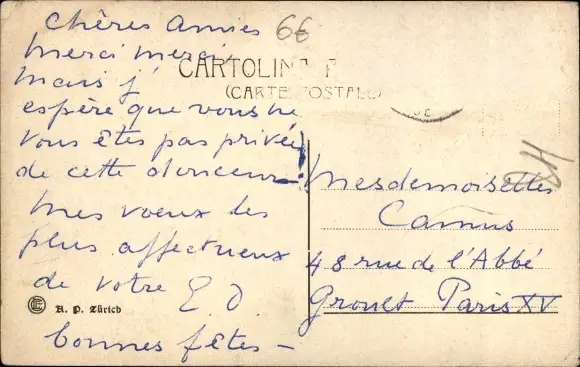 Chères Amies
Merci Merci
Mais j'
espère que vous ne
vous êtes pas privées
de cette douceur -!
Mes voeux les
plus affectueux
de votre E. D.
bonnes fêtes -
66
CARTOLINA P
(CARTE POSTALE)
24
Mesdemoiselles
Camus
48 rue de l'Abbé
Groult Paris XV
K. P. Zürich